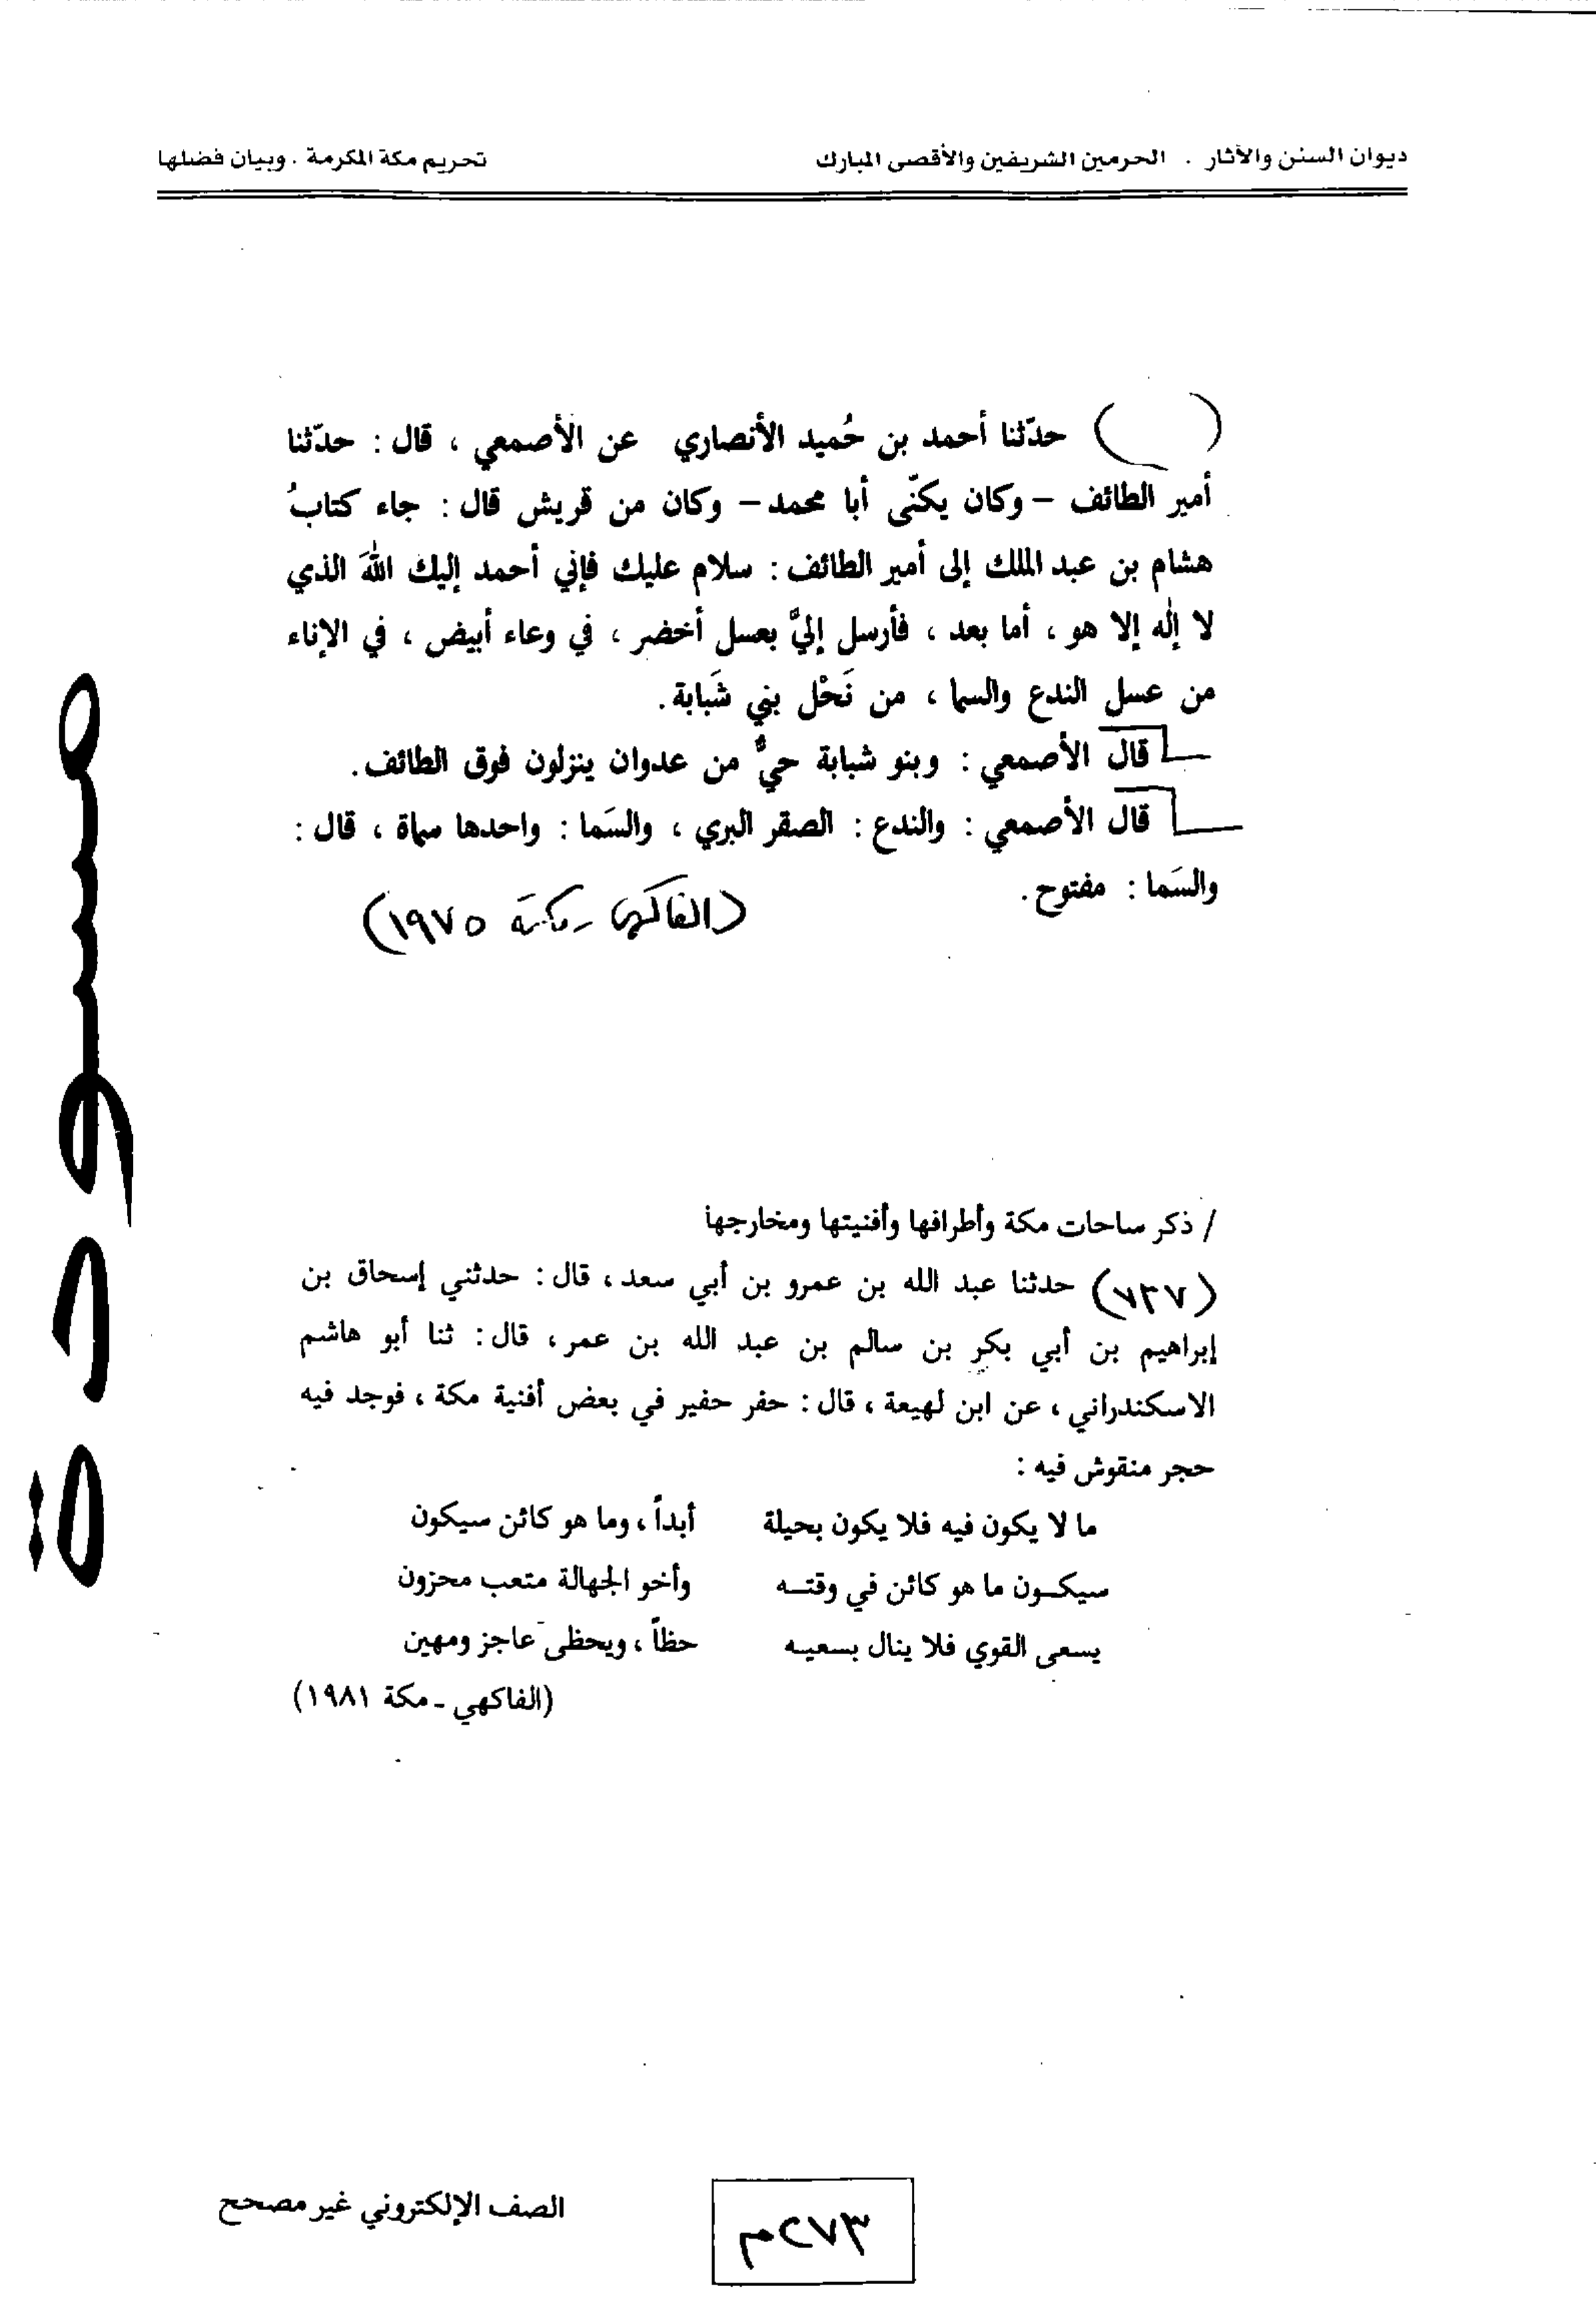 ديوان السنن والآثار . الحرمين الشريفين والأقصى المبارك
تحريم مكة المكرمة . وبيان فضلها
( ) حدّثنا أحمد بن حُميد الأنصاري عن الأصمعي ، قال : حدّثنا
أمير الطائف – وكان يكنّى أبا محمد – وكان من قريش قال : جاء كتابُ
هشام بن عبد الملك إلى أمير الطائف : سلام عليك فإني أحمد إليك اللهَ الذي
لا إله إلا هو ، أما بعد ، فأرسل إليَّ بعسل أخضر ، في وعاء أبيض ، في الإناء
من عسل الندع والسما ، من نَحْل بني شَبابة .
قال الأصمعي : وبنو شبابة حيٌّ من عدوان ينزلون فوق الطائف .
قال الأصمعي : والندع : الصقر البري ، والسَما : واحدها سماة ، قال :
والسَما : مفتوح .
(الفاكهي - مكة ١٩٧٥)
مسودة
/ ذكر ساحات مكة وأطرافها وأفنيتها ومخارجها
(٧٣٧) حدثنا عبد الله بن عمرو بن أبي سعد ، قال : حدثني إسحاق بن
إبراهيم بن أبي بكر بن سالم بن عبد الله بن عمر ، قال : ثنا أبو هاشم
الاسكندراني ، عن ابن لهيعة ، قال : حفر حفير في بعض أفنية مكة ، فوجد فيه
حجر منقوش فيه :
ما لا يكون فيه فلا يكون بحيلة أبداً ، وما هو كائن سيكون
سيكون ما هو كائن في وقته وأخو الجهالة متعب محزون
يسعى القوي فلا ينال بسعيه حظاً ، ويحظى عاجز ومهين
(الفاكهي - مكة ١٩٨١)
الصف الإلكتروني غير مصحح
٣٧٢م